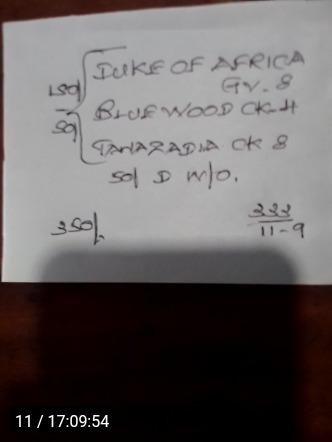 150/ DUKE OF AFRICA
GV. 8
50/ BLUEWOOD CK-4
TANAZADIA CK 8
50/ D W/O.
350/.
333
11-9
11 / 17:09:54